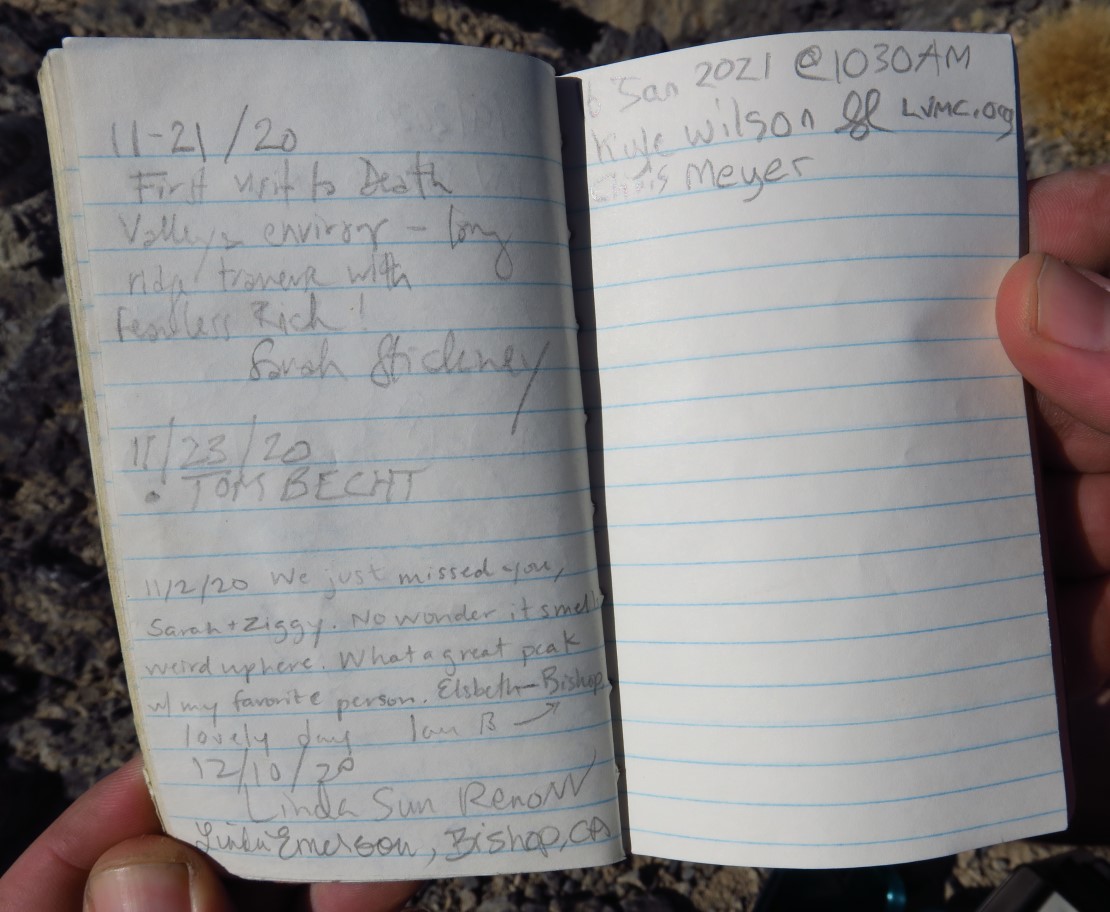 11-21/20
First visit to Death
Valley & environs - long
ridge traverse with
Fearless Rich!
Sarah Stickney
11/23/20
• TOM BECHT
11/2/20 We just missed you,
Sarah + Ziggy. No wonder it smells
weird up here. What a great peak
w/ my favorite person. Elsbeth - Bishop
lovely day Ian B →
12/10/20
Linda Sun Reno NV
Emerson, Bishop, CA
Jan 2021 @ 1030AM
Kyle Wilson LVMC.org
Chris Meyer